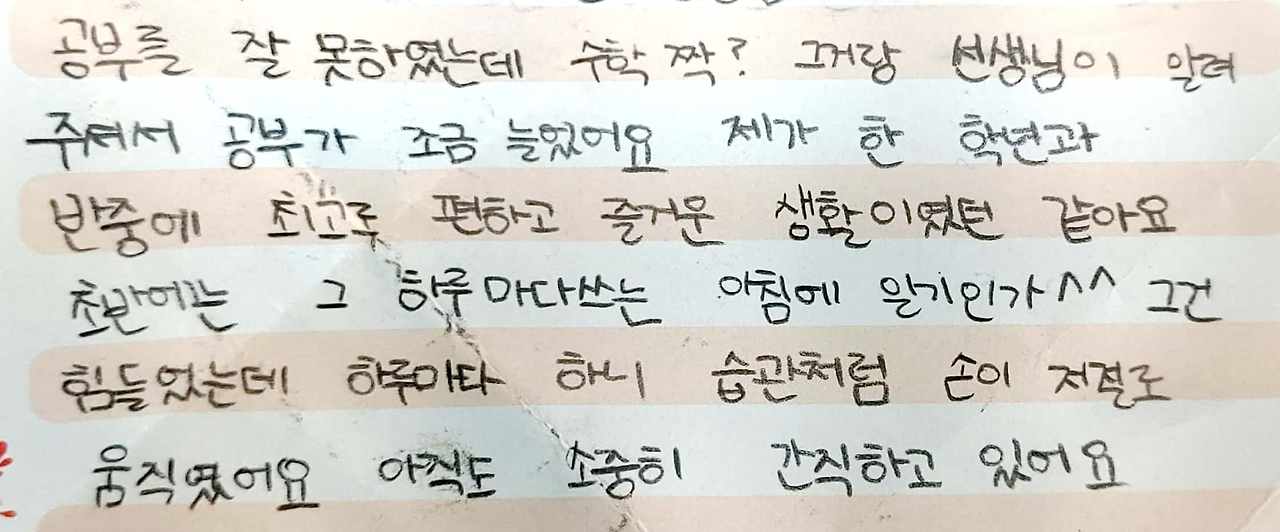 공부를 잘 못하였는데 수학 짝? 그거랑 선생님이 알려
주셔서 공부가 조금 늘었어요 제가 한 학년과
반중에 최고로 편하고 즐거운 생활이였던 같아요
초반에는 그 하루마다쓰는 아침에 일기인가^^ 그건
힘들었는데 하루마다 하니 습관처럼 손이 저절로
움직였어요 아직도 소중히 간직하고 있어요